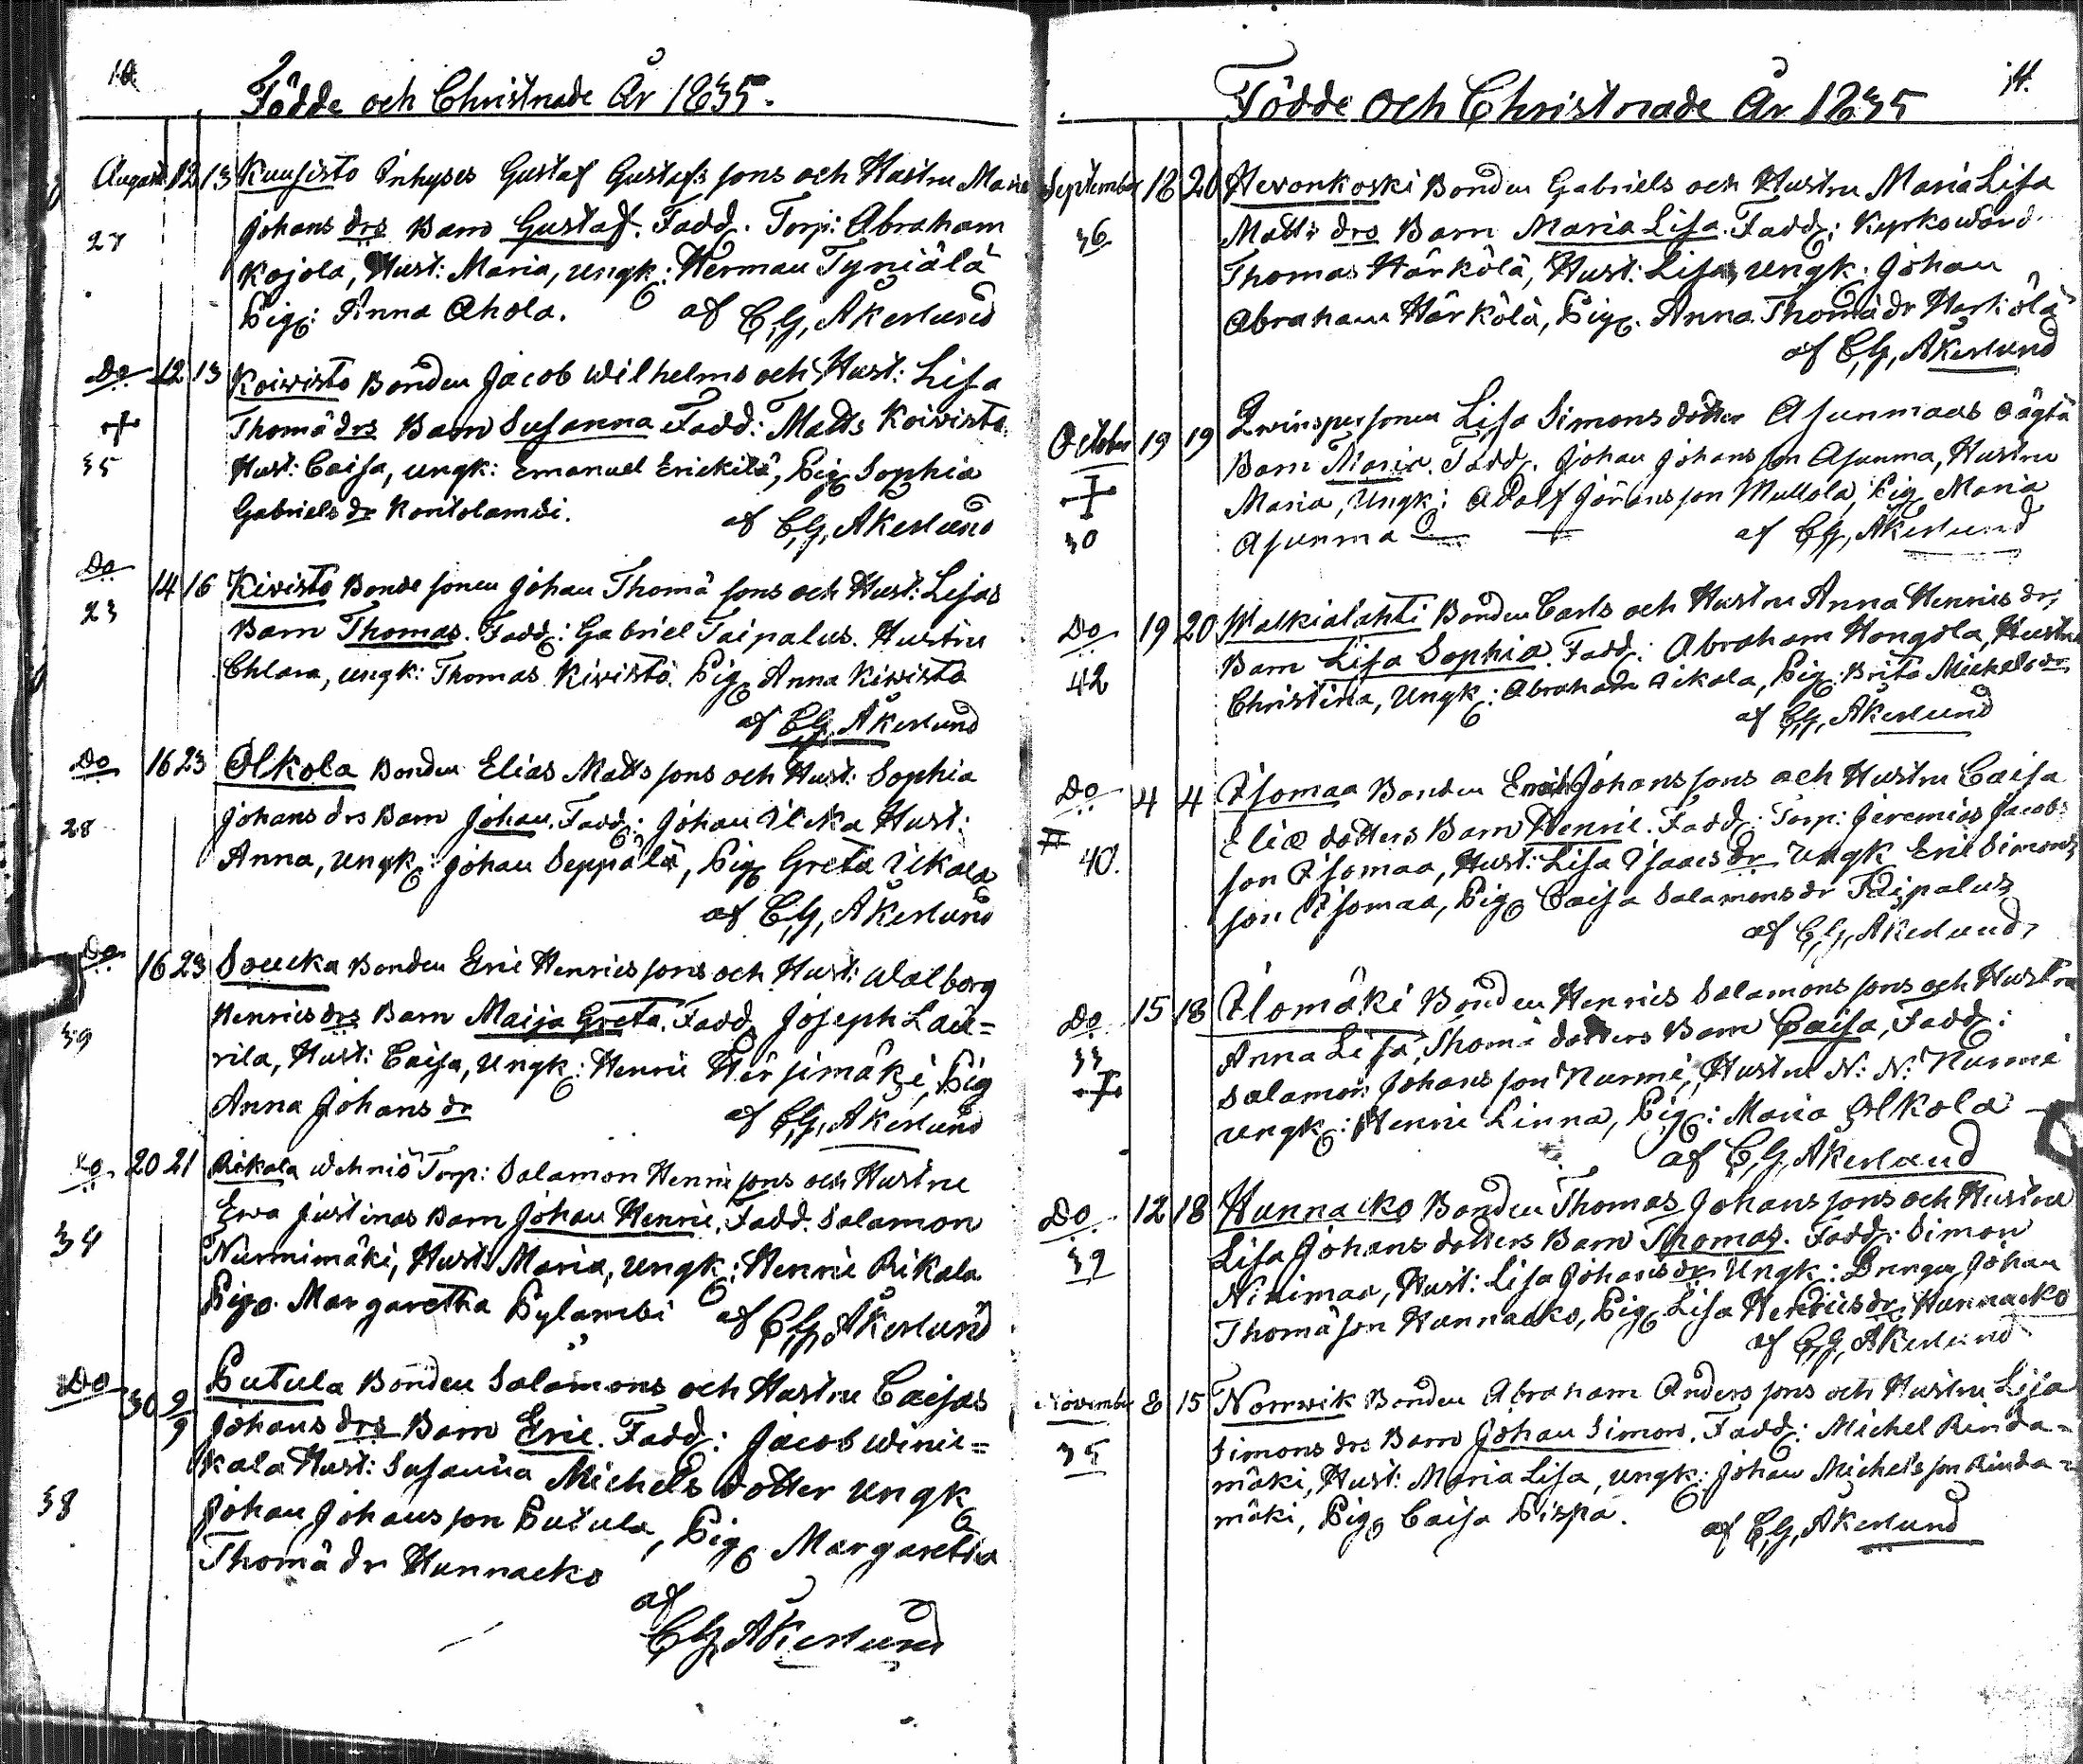 10.
Födde och Christnade År 1835.
August 12 13 Kuusisto Inhyses Gustaf Gustafs sons och Hustru Maria
Johans drs Barn Gustaf. Fadd: Torp: Abraham
27
Kojola, Hust: Maria, ungk: Herman Tyniälä
Pig: Anna Ahola. af C,G, Åkerlund
Do 12 13 Koivisto Bonden Jacob Wilhelms och Hust: Lisa
Thomä drs Barn Susanna Fadd: Matts Koivisto
35 Hust: Caisa, ungk: Emanuel Erickilä, Pig Sophia
Gabriels dr Kontolambi. af C,G, Åkerlund
Do 14 16 Kivistö Bonde sonen Johan Thomä sons och Hust: Lisas
23 Barn Thomas. Fadd: Gabriel Taipalus. Hustru
Chlara, ungk: Thomas Kivistö. Pig Anna Kivistö
af C,G, Åkerlund
Do 16 23 Olkola Bonden Elias Matts sons och Hust: Sophia
28 Johans drs Barn Johan. Fadd: Johan Ilcka Hust:
Anna, ungk: Johan Seppälä, Pig Greta Ukola
af C,G, Åkerlund
Do 16 23 Soucka Bonden Eric Henrics sons och Hust: Walborg
39 Henrics drs Barn Maija Greta. Fadd Joseph Lau=
rila, Hust: Caisa, Ungk: Henric Hirsimäki, Pig
Anna Johans dr af C,G, Åkerlund
Do 20 21 Rikala Wehniö Torp: Salamon Henric sons och Hustru
34 Ewa Justinas Barn Johan Henric, Fadd. Salamon
Nurmimäki, Hust: Maria, ungk: Henric Rikala
Pigo. Margaretha Pylambi af C,G, Åkerlund
Do 30 9/9 Putula Bonden Salamons och Hustru Caisas
Johans drs Barn Eric. Fadd: Jacob Winic=
kala Hust: Susanna Michels dotter ungk
38 Johan Johans son Putula, Pig Margaretha
Thomä dr Hunnacko
af
C,G, Åkerlund
11.
Födde och Christnade År 1835
September 18 20 Hevonkoski Bonden Gabriels och Hustru Maria Lisa
36 Matts drs Barn Maria Lisa. Fadd: Kyrkovärd
Thomas Härkölä, Hust: Lisa, ungk: Johan
Abraham Härkölä, Pig. Anna Thomä dr Härkölä
af C,G, Åkerlund
October 19 19 Qvinspersonen Lisa Simons dotter Asunmaas oägta
Barn Maria. Fadd. Johan Johans son Asunma, Hustru
30 Maria, Ungk: Adolf Jörans son Mullola, Pig Maria
Asunma af C,G, Åkerlund
Do 19 20 Walkialahti Bonden Carls och Hustru Anna Henrics dr,
42 Barn Lisa Sophia. Fadd: Abraham Hongola, Hustru
Christina, Ungk: Abraham Aikala, Pig: Brita Michels dr
af C,G, Åkerlund
Do 4 4 Isomaa Bonden Erich Johans sons och Hustru Caisa
40. Eliæ dotters Barn Henric. Fadd: Torp: Jeremias Jacobs
son Isomaa, Hust: Lisa Isaacs dr Ungk Eric Simons
son Isomaa, Pig Caisa Salamons dr Taipalus
af C,G, Åkerlund,
Do 15 18 Ilomäki Bonden Henrics Salamons sons och Hustru
33 Anna Lisa, Thomä dotters Barn Caisa, Fadd:
Salamon Johans son Nurmi, Hustru N: N: Nurmi
ungk: Henric Linna, Pig: Maria Olkola
af C,G, Åkerlund
Do 12 18 Hunnacko Bonden Thomas Johans sons och Hustru
39 Lisa Johans dotters Barn Thomas. Fadd: Simon
Ninimaa, Hust: Lisa Johans dr Ungk: Drengen Johan
Thomä son Hunnacko, Pig Lisa Henrics dr Hunnacko
af C,G, Åkerlund
November 8 15 Norrwik Bonden Abraham Anders sons och Hustru Lisa
35 Simons drs Barn Johan Simon. Fadd: Michel Rinda=
mäki, Hust: Maria Lisa, ungk: Johan Michels son Rinda=
mäki, Pig Caisa Pispa. af C,G, Åkerlund